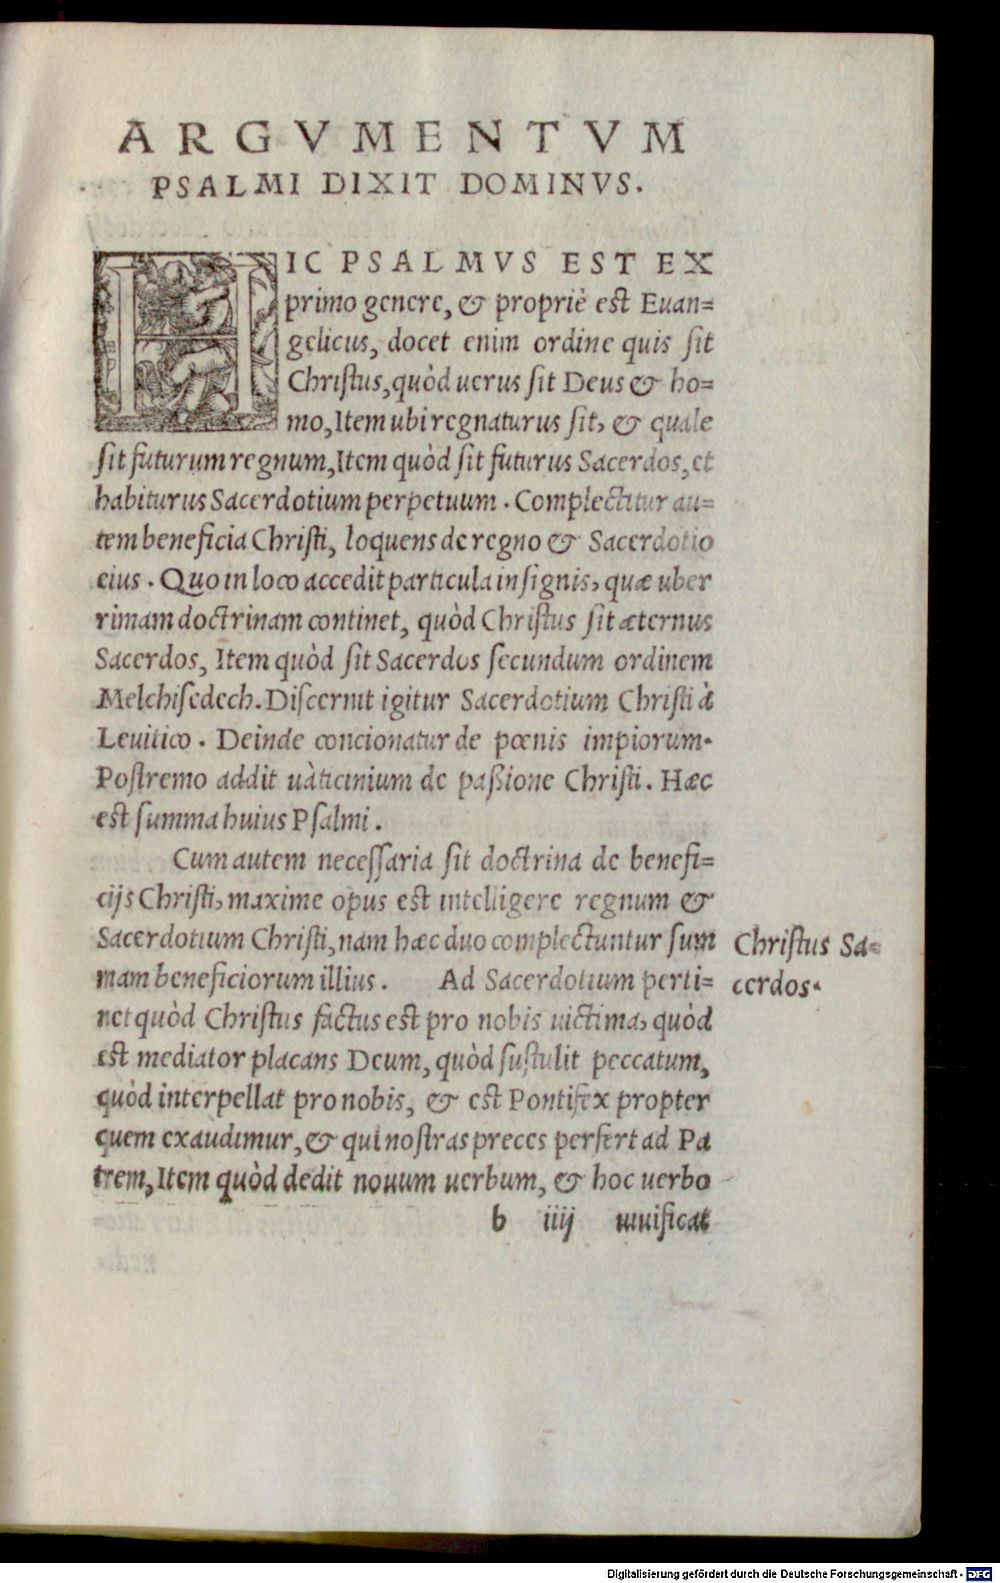 ARGVMENTVM
PSALMI DIXIT DOMINVS.
HIC PSALMVS EST EX
primo genere, & propriè est Euan=
gelicus, docet enim ordine quis sit
Christus, quòd uerus sit Deus & ho=
mo, Item ubi regnaturus sit, & quale
sit futurum regnum, Item quòd sit futurus Sacerdos, et
habiturus Sacerdotium perpetuum. Complectitur au=
tem beneficia Christi, loquens de regno & Sacerdotio
eius. Quo in loco accedit particula insignis, quæ uber
rimam doctrinam continet, quòd Christus sit æternus
Sacerdos, Item quòd sit Sacerdos secundum ordinem
Melchisedech. Discernit igitur Sacerdotium Christi à
Leuitico. Deinde concionatur de pœnis impiorum.
Postremo addit uàticinium de paßione Christi. Hæc
est summa huius Psalmi.
Cum autem necessaria sit doctrina de benefi=
cijs Christi, maxime opus est intelligere regnum &
Sacerdotium Christi, nam hæc duo complectuntur sum
mam beneficiorum illius. Ad Sacerdotium perti=
net quòd Christus factus est pro nobis uictima, quòd
est mediator placans Deum, quòd sustulit peccatum,
quòd interpellat pro nobis, & est Pontifex propter
quem exaudimur, & qui nostras preces perfert ad Pa
trem, Item quòd dedit nouum uerbum, & hoc uerbo
b iiij uiuificat
Christus Sa=
cerdos.
Digitalisierung gefördert durch die Deutsche Forschungsgemeinschaft - DFG